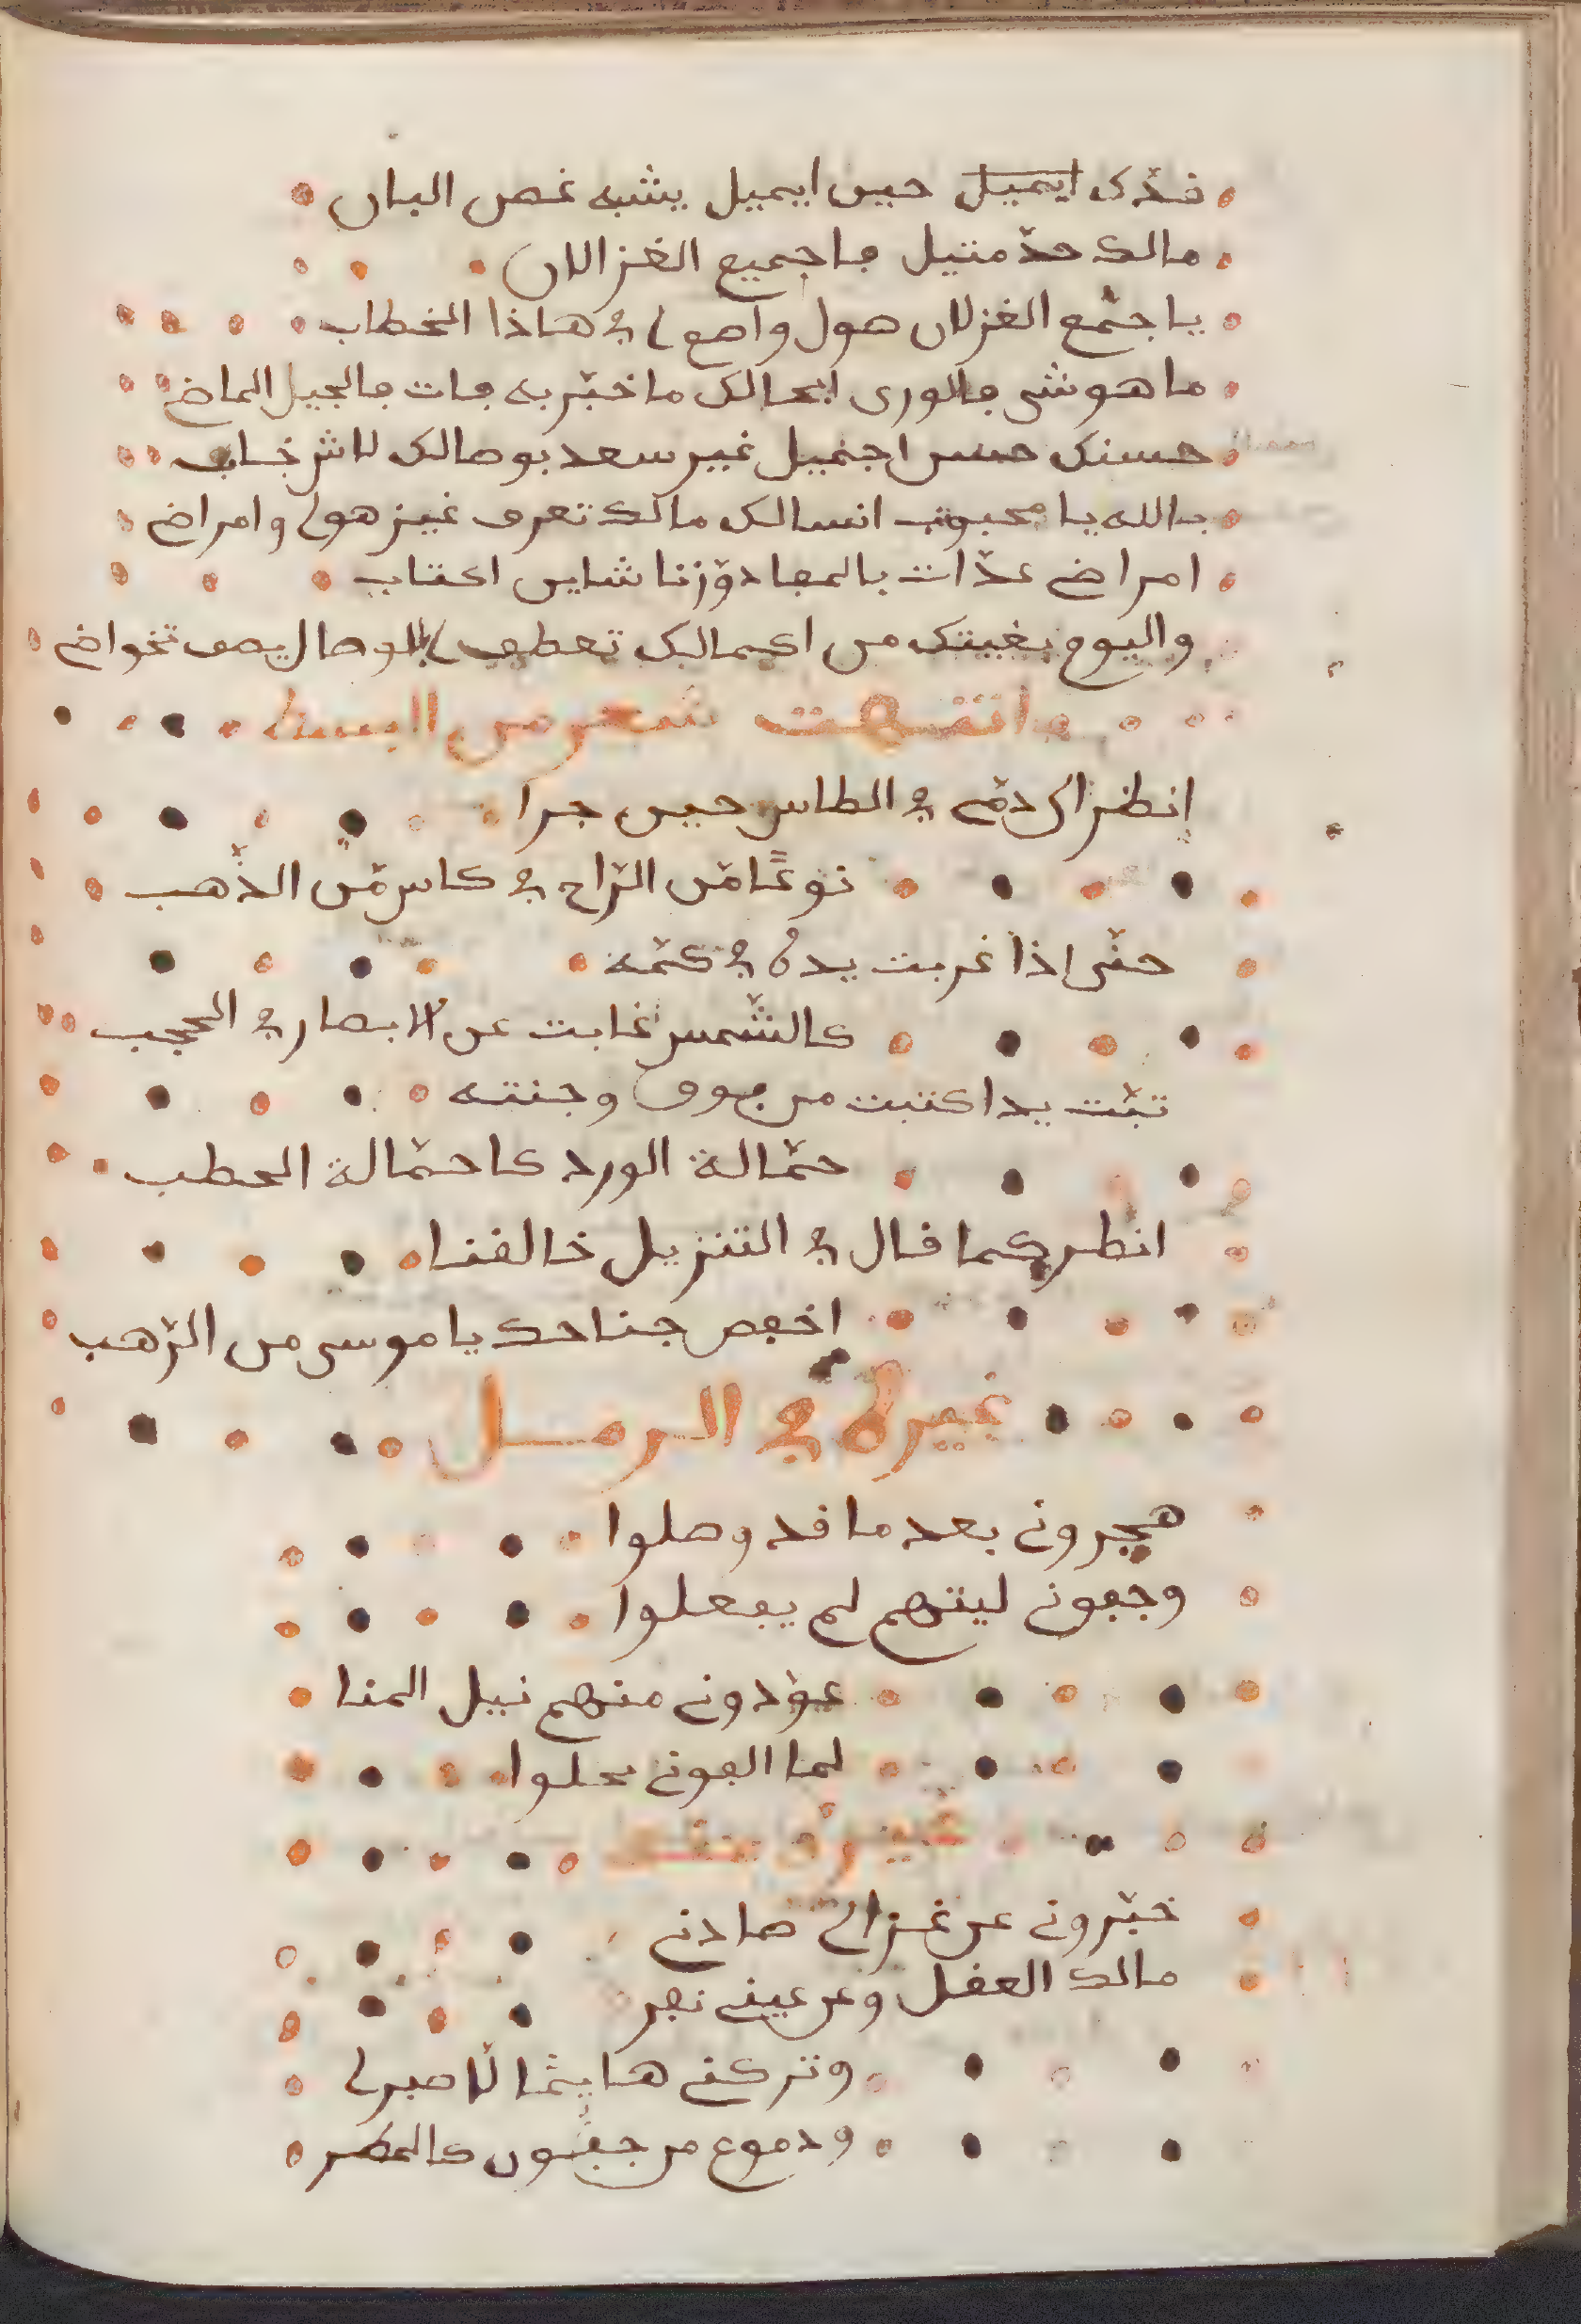 قدّك ايميل حين ايميل يشبه غصن البان
مالك حدّ مثيل فاجميع الغزالان
يا جمّع الغزلان هول واصع في هاذا الخطاب
ما هوشي فالورى ابحالك ما خبّر به فات فالجيل الماض
حسنك حسن اجميل غير سعد بوصالك لاش خاب
بالله يا محبوب انسالك مالك تعرف غير هو وامراض
امراض عدّات بالمعا دوّزنا شاين اكتاب
واليوم بغيتك من اكمالك تعطف بالوصال يصف تخواض
انتهت شعر من البسيط
انظر الى دمّي في الطاس حين جرا
نوعًا مّن الرّاح في كاس مّن الذّهب
حتّى اذا غربت يده في كمّه
كالشّمس غابت عن الابصار في الحجب
تبّت يدا كتبت من فوق وجنته
حمّالة الورد كاحمّالة الحطب
انظر كما قال في التنزيل خالقنا
اخفض جناحك يا موسى من الرّهب
غيره في الرمل
هجروني بعد ما قد وصلوا
وجفوني ليتهم لم يفعلوا
عوّدوني منهم نيل المنا
لما الفوني بخلوا
غيره منه
خبّروني عن غزال صادني
مالك العقل وعن عيني نفر
وتركني هايمًا لا صبر لي
ودموع من جفون كالمطر